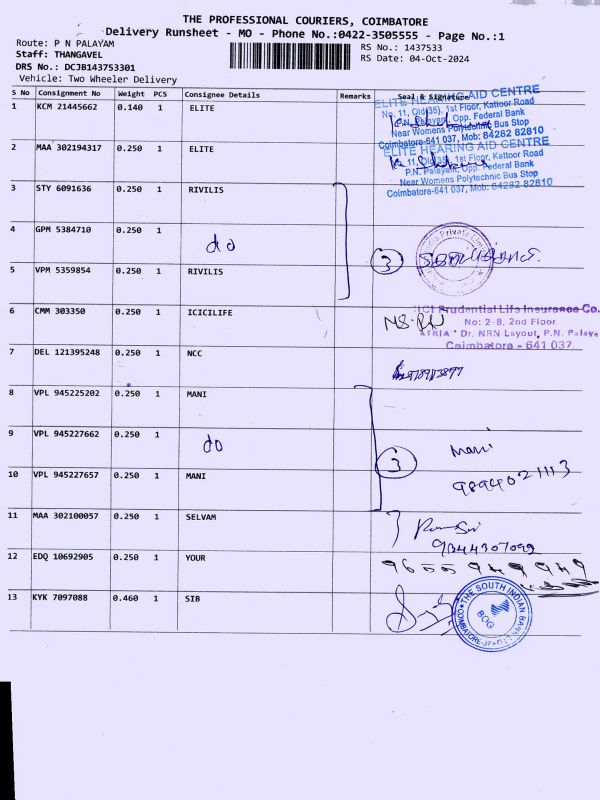 THE PROFESSIONAL COURIERS, COIMBATORE
Delivery Runsheet - MO - Phone No.:0422-3505555 - Page No.:1
Route: P N PALAYAM
Staff: THANGAVEL
DRS No.: DCJB143753301
Vehicle: Two Wheeler Delivery
RS No.: 1437533
RS Date: 04-Oct-2024
S No Consignment No Weight PCS Consignee Details Remarks Seal & Signature
1 KCM 21445662 0.140 1 ELITE
ELITE HEARING AID CENTRE
No. 11, Old(35), 1st Floor, Kattoor Road
P.N. Palayam, Opp. Federal Bank
Near Womens Polytechnic Bus Stop
Coimbatore-641 037, Mob: 84282 82810
2 MAA 302194317 0.250 1 ELITE
ELITE HEARING AID CENTRE
No. 11, Old(35), 1st Floor, Kattoor Road
P.N. Palayam, Opp. Federal Bank
Near Womens Polytechnic Bus Stop
Coimbatore-641 037, Mob: 84282 82810
3 STY 6091636 0.250 1 RIVILIS
4 GPM 5384710 0.250 1 do
3
5 VPM 5359854 0.250 1 RIVILIS
6 CMM 303350 0.250 1 ICICILIFE
ICICI Prudential Life Insurance Co.
No: 2-8, 2nd Floor
ATRIA" Dr. NRN Layout, P.N. Palaya
Coimbatore - 641 037
7 DEL 121395248 0.250 1 NCC
8 VPL 945225202 0.250 1 MANI
9 VPL 945227662 0.250 1 do
3 Mani
9894021113
10 VPL 945227657 0.250 1 MANI
11 MAA 302100057 0.250 1 SELVAM
9344307092
12 EDQ 10692905 0.250 1 YOUR
9655949949
13 KYK 7097088 0.460 1 SIB
THE SOUTH INDIAN BANK
BOG